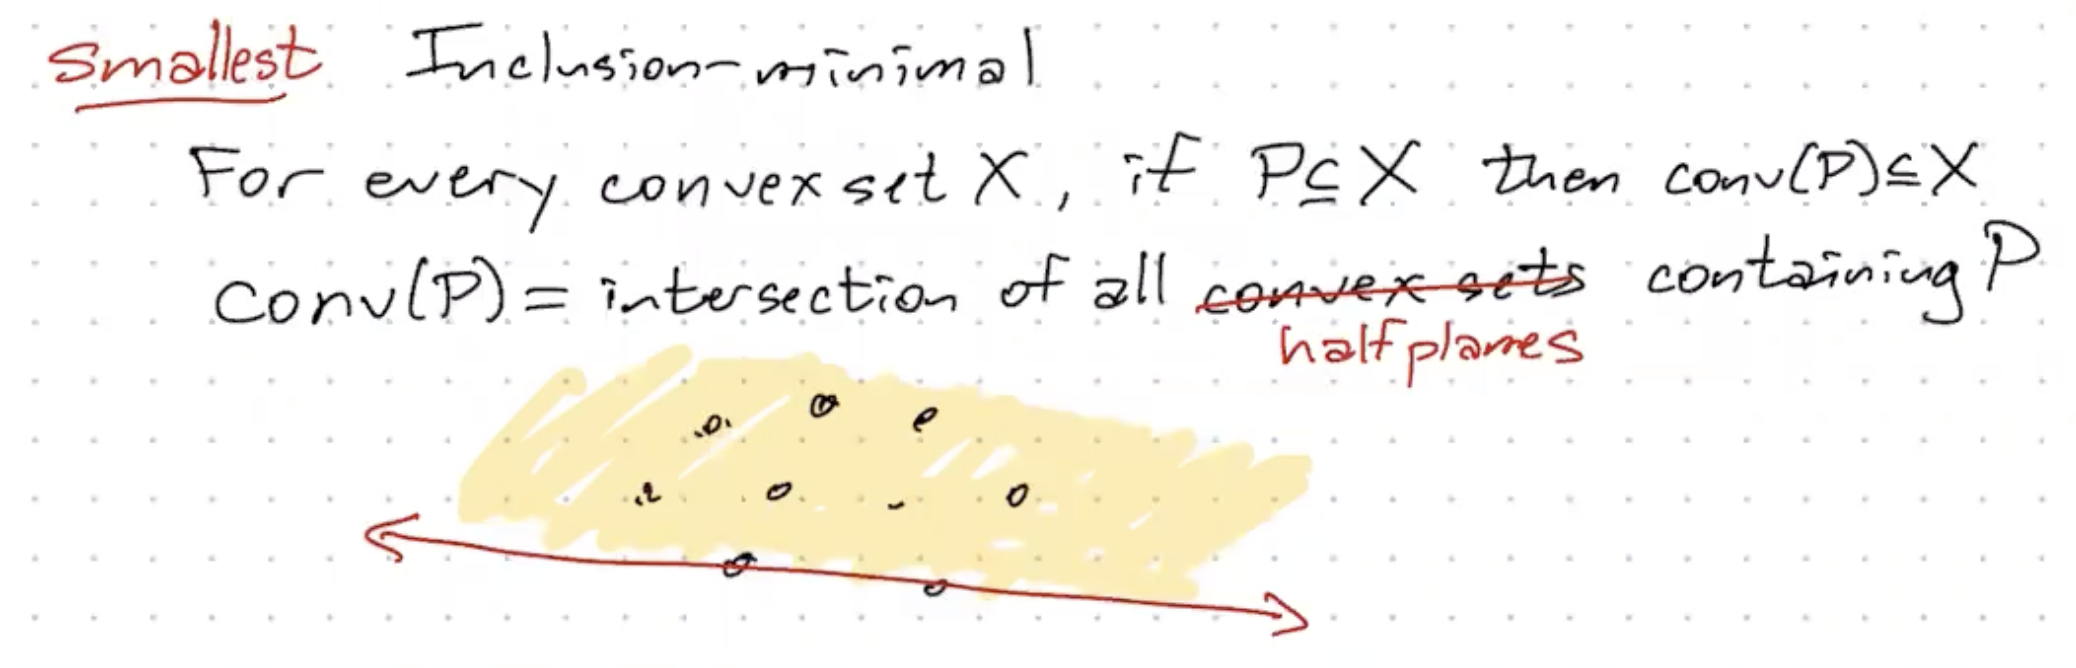 Smallest Inclusion-minimal
For every convex set X, if P⊆X then conv(P)⊆X
conv(P) = intersection of all convex sets containing P
halfplanes